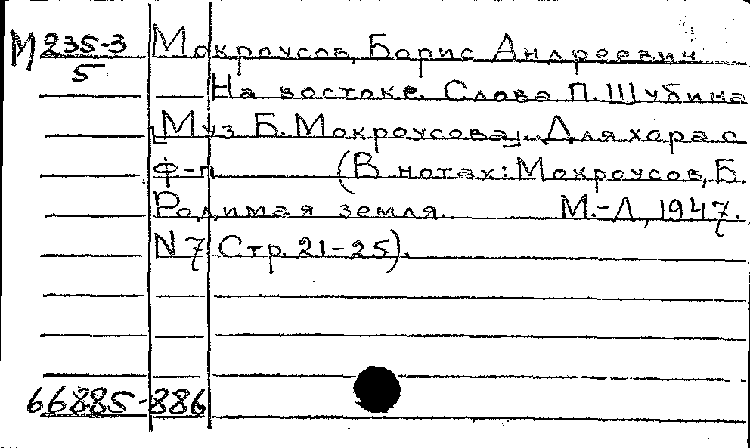 М 235-3 Мокроусов, Борис Андреевич
5
На востоке. Слова П. Шубина
[Муз. Б. Мокроусова]. Для хора с
ф-п (В нотах: Мокроусов, Б.
Родимая земля. М.-Л, 1947.
N 7 Стр. 21-25).
66885-886